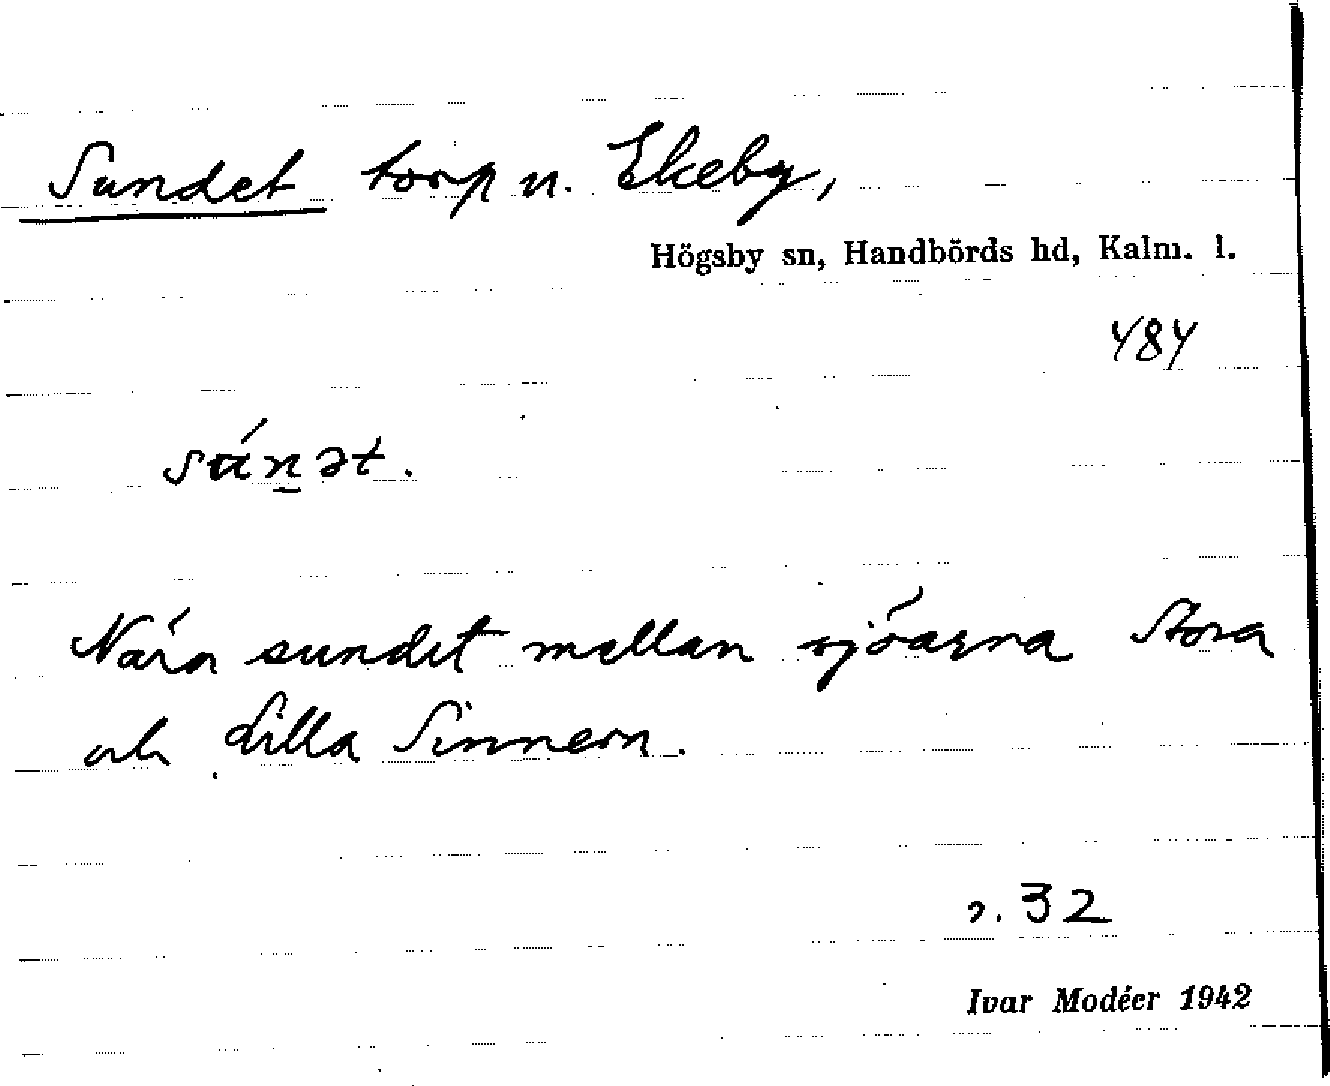 Sundet torp u. Ekeby,
Högsby sn, Handbörds hd, Kalm. l.
484
sún̲ət.
Nära sundet mellan sjöarna Stora
och Lilla Sinnern.
s. 32
Ivar Modéer 1942